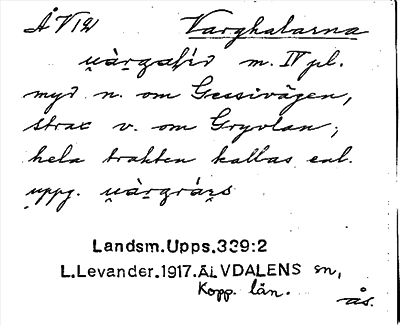 ÅV12 Varghalarna
m. IV pl.
myr n. om Gessivägen,
strax v. om Gryvlan;
hela trakten kallas enl.
uppg.
Landsm. Upps. 339:2
L. Levander. 1917. ÄLVDALENS sn,
Kopp. län.
ås.